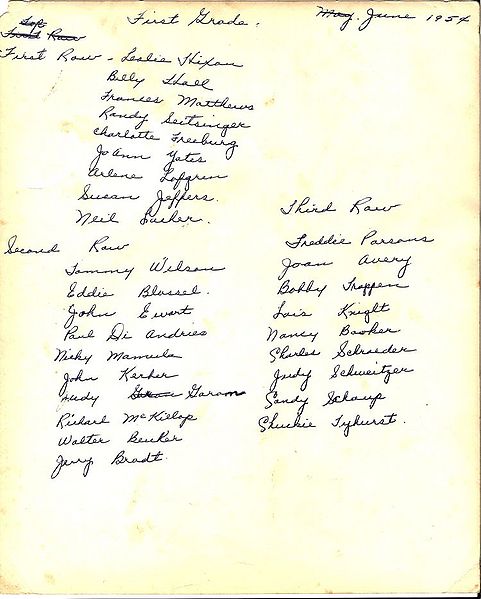 First Grade.
May. June 1954
Top
First Row
First Row - Leslie Hixon
Billy Hall
Frances Matthews
Randy Seitsinger
Charlotte Freeburg
JoAnn Yates
Arlene Lofgrin
Susan Jeffers.
Neil
Second Row
Tommy Wilson
Eddie Blossel.
John Ewart
Paul Di Andries
Nicky Mamula
John Kerher
Judy Garam
Richard McKillop
Walter Beuker
Jerry Bradt.
Third Row
Freddie Parsons
Joan Avery
Bobby Trappen
Lois Knight
Nancy Booher
Charles Schraeder
Judy Schweitzer
Sandy Schaup
Chuckie Tyhurst.